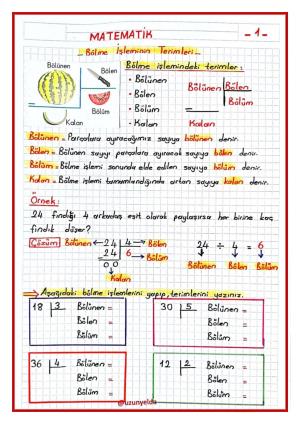 MATEMATİK
-1-
Bölme İşleminin Terimleri
Bölünen
Bölen
Bölüm
Kalan
Bölme işlemindeki terimler:
• Bölünen
• Bölen
• Bölüm
• Kalan
Bölünen Bölen
Bölüm
Kalan
Bölünen = Parçalara ayıracağımız sayıya bölünen denir.
Bölen = Bölünen sayıyı parçalara ayıracak sayıya bölen denir.
Bölüm = Bölme işlemi sonunda elde edilen sayıya bölüm denir.
Kalan = Bölme işlemi tamamlandığında artan sayıya kalan denir.
Örnek:
24 fındığı 4 arkadaş eşit olarak paylaşırsa her birine kaç
fındık düşer?
Çözüm
Bölünen ← 24 4 → Bölen
- 24 6 → Bölüm
00
Kalan
24 ÷ 4 = 6
Bölünen Bölen Bölüm
Aşağıdaki bölme işlemlerini yapıp, terimlerini yazınız.
18 3 Bölünen =
Bölen =
Bölüm =
30 5 Bölünen =
Bölen =
Bölüm =
36 4 Bölünen =
Bölen =
Bölüm =
12 2 Bölünen =
Bölen =
Bölüm =
@uzunyelda